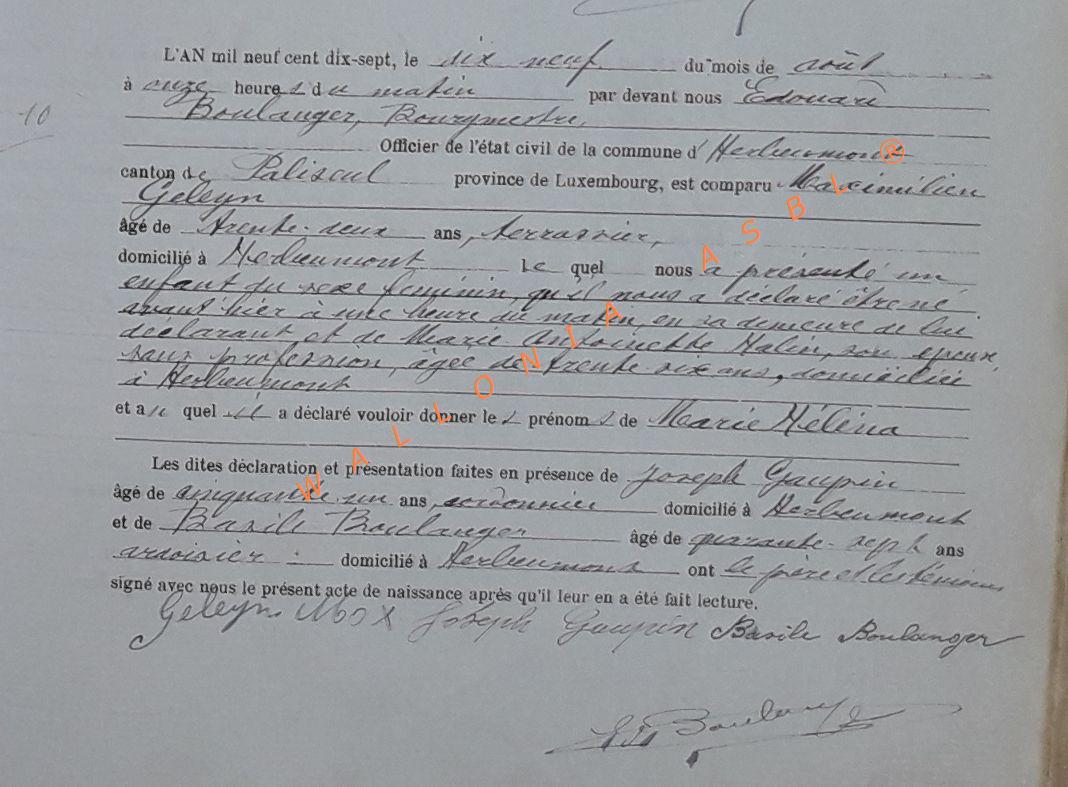 L'AN mil neuf cent dix-sept, le dix neuf du mois de août
10
à onze heures du matin par devant nous Edouard
Boulanger, Bourgmestre,
Officier de l'état civil de la commune d'Herbeumont
canton de Paliseul province de Luxembourg, est comparu Maximilien
Geleyn
âgé de trente-deux ans, terrassier,
domicilié à Herbeumont le quel nous a présenté un
enfant du sexe féminin, qu'il nous a déclaré être né
avant hier à une heure du matin, en sa demeure de lui
déclarant et de Marie Antoinette Halin, son épouse,
sans profession, âgée de trente six ans, domiciliée
à Herbeumont
et au quel il a déclaré vouloir donner les prénoms de Marie Héléna
Les dites déclaration et présentation faites en présence de Joseph Gaupin
âgé de cinquante un ans, cordonnier domicilié à Herbeumont
et de Basile Boulanger âgé de quarante-sept ans
ardoisier domicilié à Herbeumont ont le père et les témoins
signé avec nous le présent acte de naissance après qu'il leur en a été fait lecture.
Geleyn Max Joseph Gaupin Basile Boulanger
Ed Boulanger
WALLONIA ASBL ®